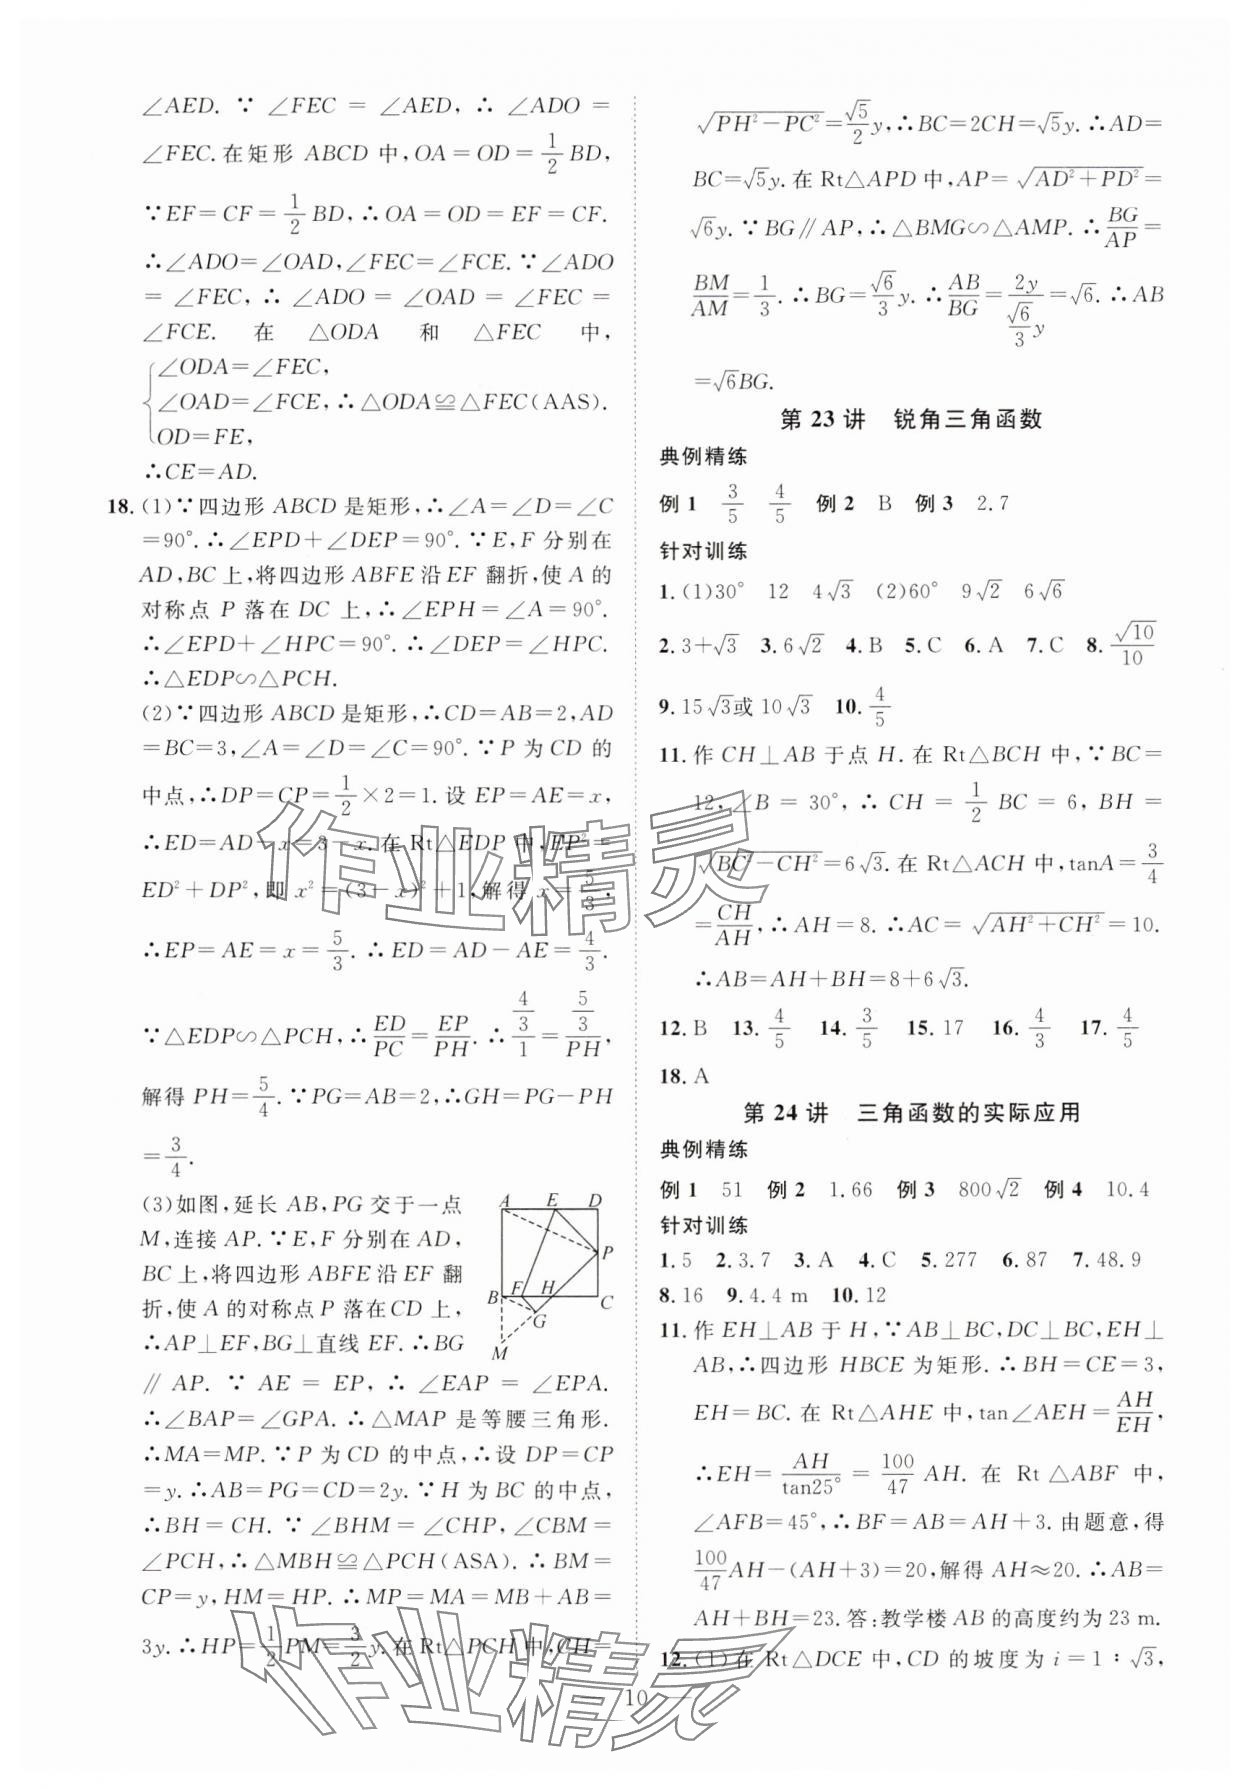 ∠AED. ∵ ∠FEC = ∠AED, ∴ ∠ADO =
∠FEC. 在矩形 ABCD 中, OA=OD=1/2 BD,
∵EF=CF=1/2 BD, ∴OA=OD=EF=CF.
∴∠ADO=∠OAD, ∠FEC=∠FCE. ∵∠ADO
= ∠FEC, ∴ ∠ADO = ∠OAD = ∠FEC =
∠FCE. 在 △ODA 和 △FEC 中,
{∠ODA=∠FEC,
∠OAD=∠FCE, ∴△ODA≌△FEC(AAS).
OD=FE,
∴CE=AD.
18. (1)∵四边形 ABCD 是矩形, ∴∠A=∠D=∠C
=90°. ∴∠EPD+∠DEP=90°. ∵E, F 分别在
AD, BC 上, 将四边形 ABFE 沿 EF 翻折, 使 A 的
对称点 P 落在 DC 上, ∴∠EPH=∠A=90°.
∴∠EPD+∠HPC=90°. ∴∠DEP=∠HPC.
∴△EDP∽△PCH.
(2)∵四边形 ABCD 是矩形, ∴CD=AB=2, AD
=BC=3, ∠A=∠D=∠C=90°. ∵P 为 CD 的
中点, ∴DP=CP=1/2×2=1. 设 EP=AE=x,
∴ED=AD-x=3-x. 在 Rt△EDP 中, EP²=
ED²+DP², 即 x²=(3-x)²+1, 解得 x=5/3,
∴EP=AE=x=5/3. ∴ED=AD-AE=4/3.
∵△EDP∽△PCH, ∴ED/PC=EP/PH. ∴(4/3)/1=(5/3)/PH,
解得 PH=5/4. ∵PG=AB=2, ∴GH=PG-PH
=3/4.
(3)如图, 延长 AB, PG 交于一点
M, 连接 AP. ∵E, F 分别在 AD,
BC 上, 将四边形 ABFE 沿 EF 翻
折, 使 A 的对称点 P 落在 CD 上,
∴AP⊥EF, BG⊥直线 EF. ∴BG
A E D
P
B F H C
G
M
∥AP. ∵ AE = EP, ∴ ∠EAP = ∠EPA.
∴∠BAP=∠GPA. ∴△MAP 是等腰三角形.
∴MA=MP. ∵P 为 CD 的中点, ∴设 DP=CP
=y. ∴AB=PG=CD=2y. ∵H 为 BC 的中点,
∴BH=CH. ∵∠BHM=∠CHP, ∠CBM=
∠PCH, ∴△MBH≌△PCH(ASA). ∴BM=
CP=y, HM=HP. ∴MP=MA=MB+AB=
3y. ∴HP=1/2PM=3/2y. 在 Rt△PCH 中, CH=
√(PH²-PC²)=√5/2 y, ∴BC=2CH=√5y. ∴AD=
BC=√5y. 在 Rt△APD 中, AP=√(AD²+PD²)=
√6y. ∵BG∥AP, ∴△BMG∽△AMP. ∴BG/AP=
BM/AM=1/3. ∴BG=√6/3 y. ∴AB/BG=2y/(√6/3 y)=√6. ∴AB
=√6BG.
第 23 讲 锐角三角函数
典例精练
例 1 3/5 4/5 例 2 B 例 3 2.7
针对训练
1. (1)30° 12 4√3 (2)60° 9√2 6√6
2. 3+√3 3. 6√2 4. B 5. C 6. A 7. C 8. √10/10
9. 15√3或10√3 10. 4/5
11. 作 CH⊥AB 于点 H. 在 Rt△BCH 中, ∵BC=
12, ∠B = 30°, ∴ CH = 1/2 BC = 6, BH =
√(BC²-CH²)=6√3. 在 Rt△ACH 中, tanA=3/4
=CH/AH, ∴AH=8. ∴AC=√(AH²+CH²)=10.
∴AB=AH+BH=8+6√3.
12. B 13. 4/5 14. 3/5 15. 17 16. 4/3 17. 4/5
18. A
第 24 讲 三角函数的实际应用
典例精练
例 1 51 例 2 1.66 例 3 800√2 例 4 10.4
针对训练
1. 5 2. 3.7 3. A 4. C 5. 277 6. 87 7. 48.9
8. 16 9. 4.4 m 10. 12
11. 作 EH⊥AB 于 H, ∵AB⊥BC, DC⊥BC, EH⊥
AB, ∴四边形 HBCE 为矩形. ∴BH=CE=3,
EH=BC. 在 Rt△AHE 中, tan∠AEH=AH/EH,
∴EH=AH/tan25°=100/47 AH. 在 Rt△ABF 中,
∠AFB=45°, ∴BF=AB=AH+3. 由题意, 得
100/47AH-(AH+3)=20, 解得 AH≈20. ∴AB=
AH+BH=23. 答: 教学楼 AB 的高度约为 23 m.
12. (1)在 Rt△DCE 中, CD 的坡度为 i=1∶√3,
10
作业精灵
作业精灵